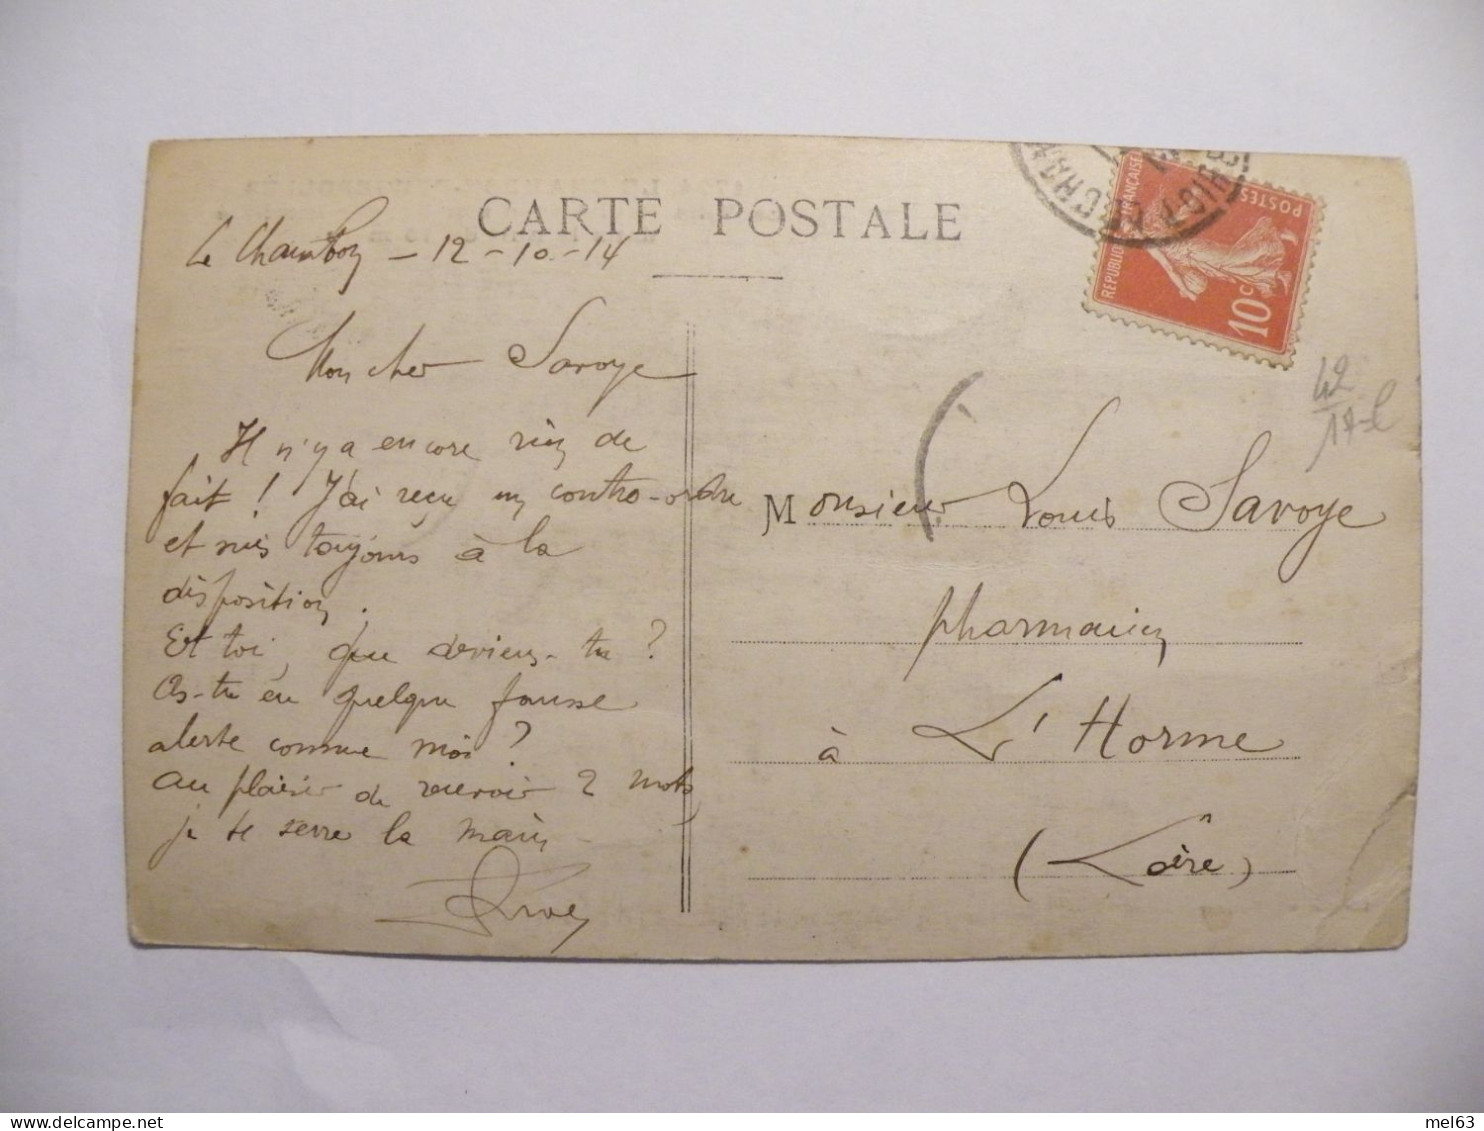 CARTE POSTALE
Le Chambon - 12-10-14
Mon cher Savoye
Il n'y a encore rien de
fait ! J'ai reçu un contre-ordre
et suis toujours à la
disposition.
Et toi, que deviens-tu ?
As-tu eu quelque fausse
alerte comme moi ?
Au plaisir de recevoir 2 mots,
je te serre la main -
REPUBLIQUE FRANÇAISE
POSTES
10 c
LOIRE
42
Monsieur Louis Savoye
pharmacien
à L'Horme
(Loire)
mel63